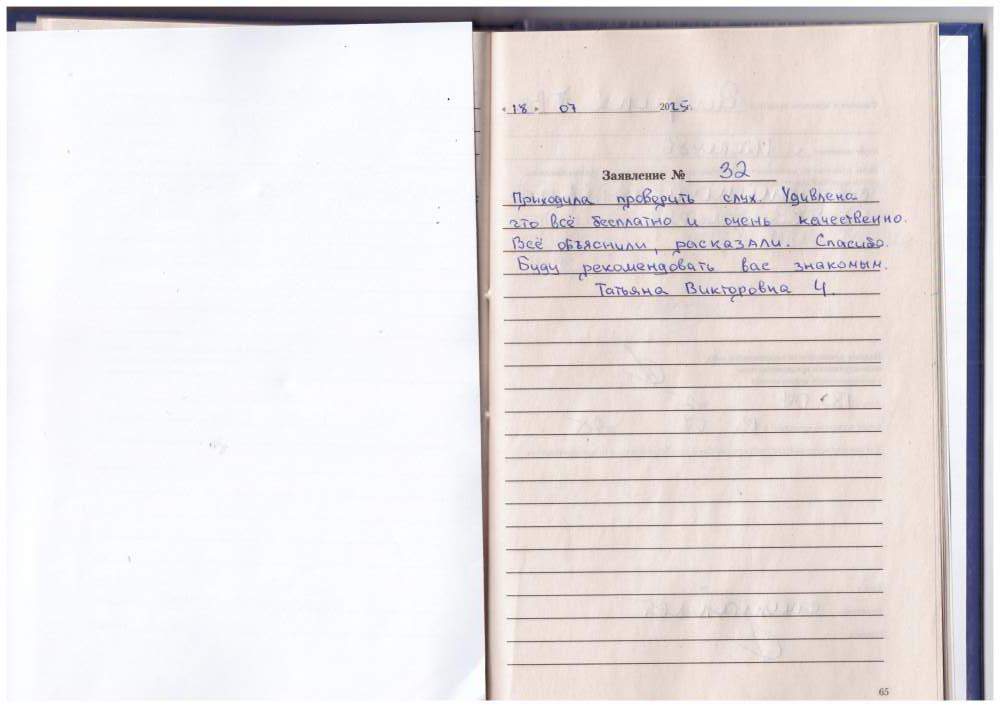 « 18 » 07 2025г.
Заявление № 32
Приходила проверить слух. Удивлена
что всё бесплатно и очень качественно.
Всё объяснили, расказали. Спасибо.
Буду рекомендовать вас знакомым.
Татьяна Викторовна Ч.
65